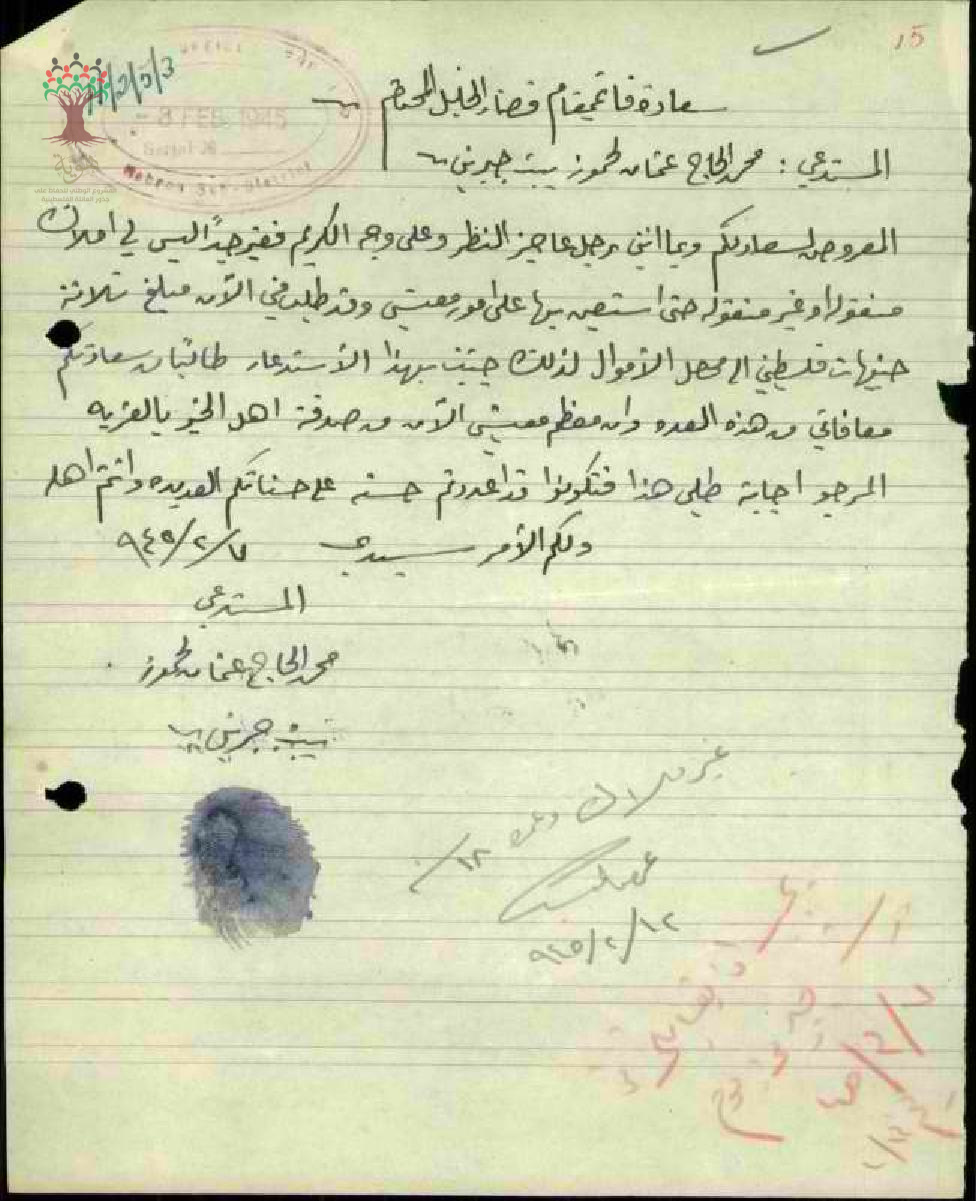 15
8 FEB 1945
Serial No
Hebron Sub-District
سعادة قائمقام قضاء الخليل المحترم
المستدعي : محمد الحاج عثمان لحموز بيت جبرين
المعروض لسعادتكم وبما انني رجل عاجز النظر وعلى وجه الكريم فقير جداً ليس لي املاك
منقوله او غير منقوله حتى استعين بها على امور معيشتي وقد طلب مني الآن مبلغ ثلاثة
جنيهات فلسطيني الى محصل الأموال لذلك جيت بهذا الأستدعاء طالباً من سعادتكم
معافاتي من هذه العده وان معظم معيشتي الآن من صدقة اهل الخير بالقريه
المرجو اجابة طلبي هذا فتكونوا قد اعددتم حسنه على حسناتكم العديده وانتم اهله
ولكم الأمر سيدي ٧/٢/٩٤٥
المستدعي
محمد الحاج عثمان لحموز
بيت جبرين
غير ملاك وعمره
١٢/٢/٩٤٥